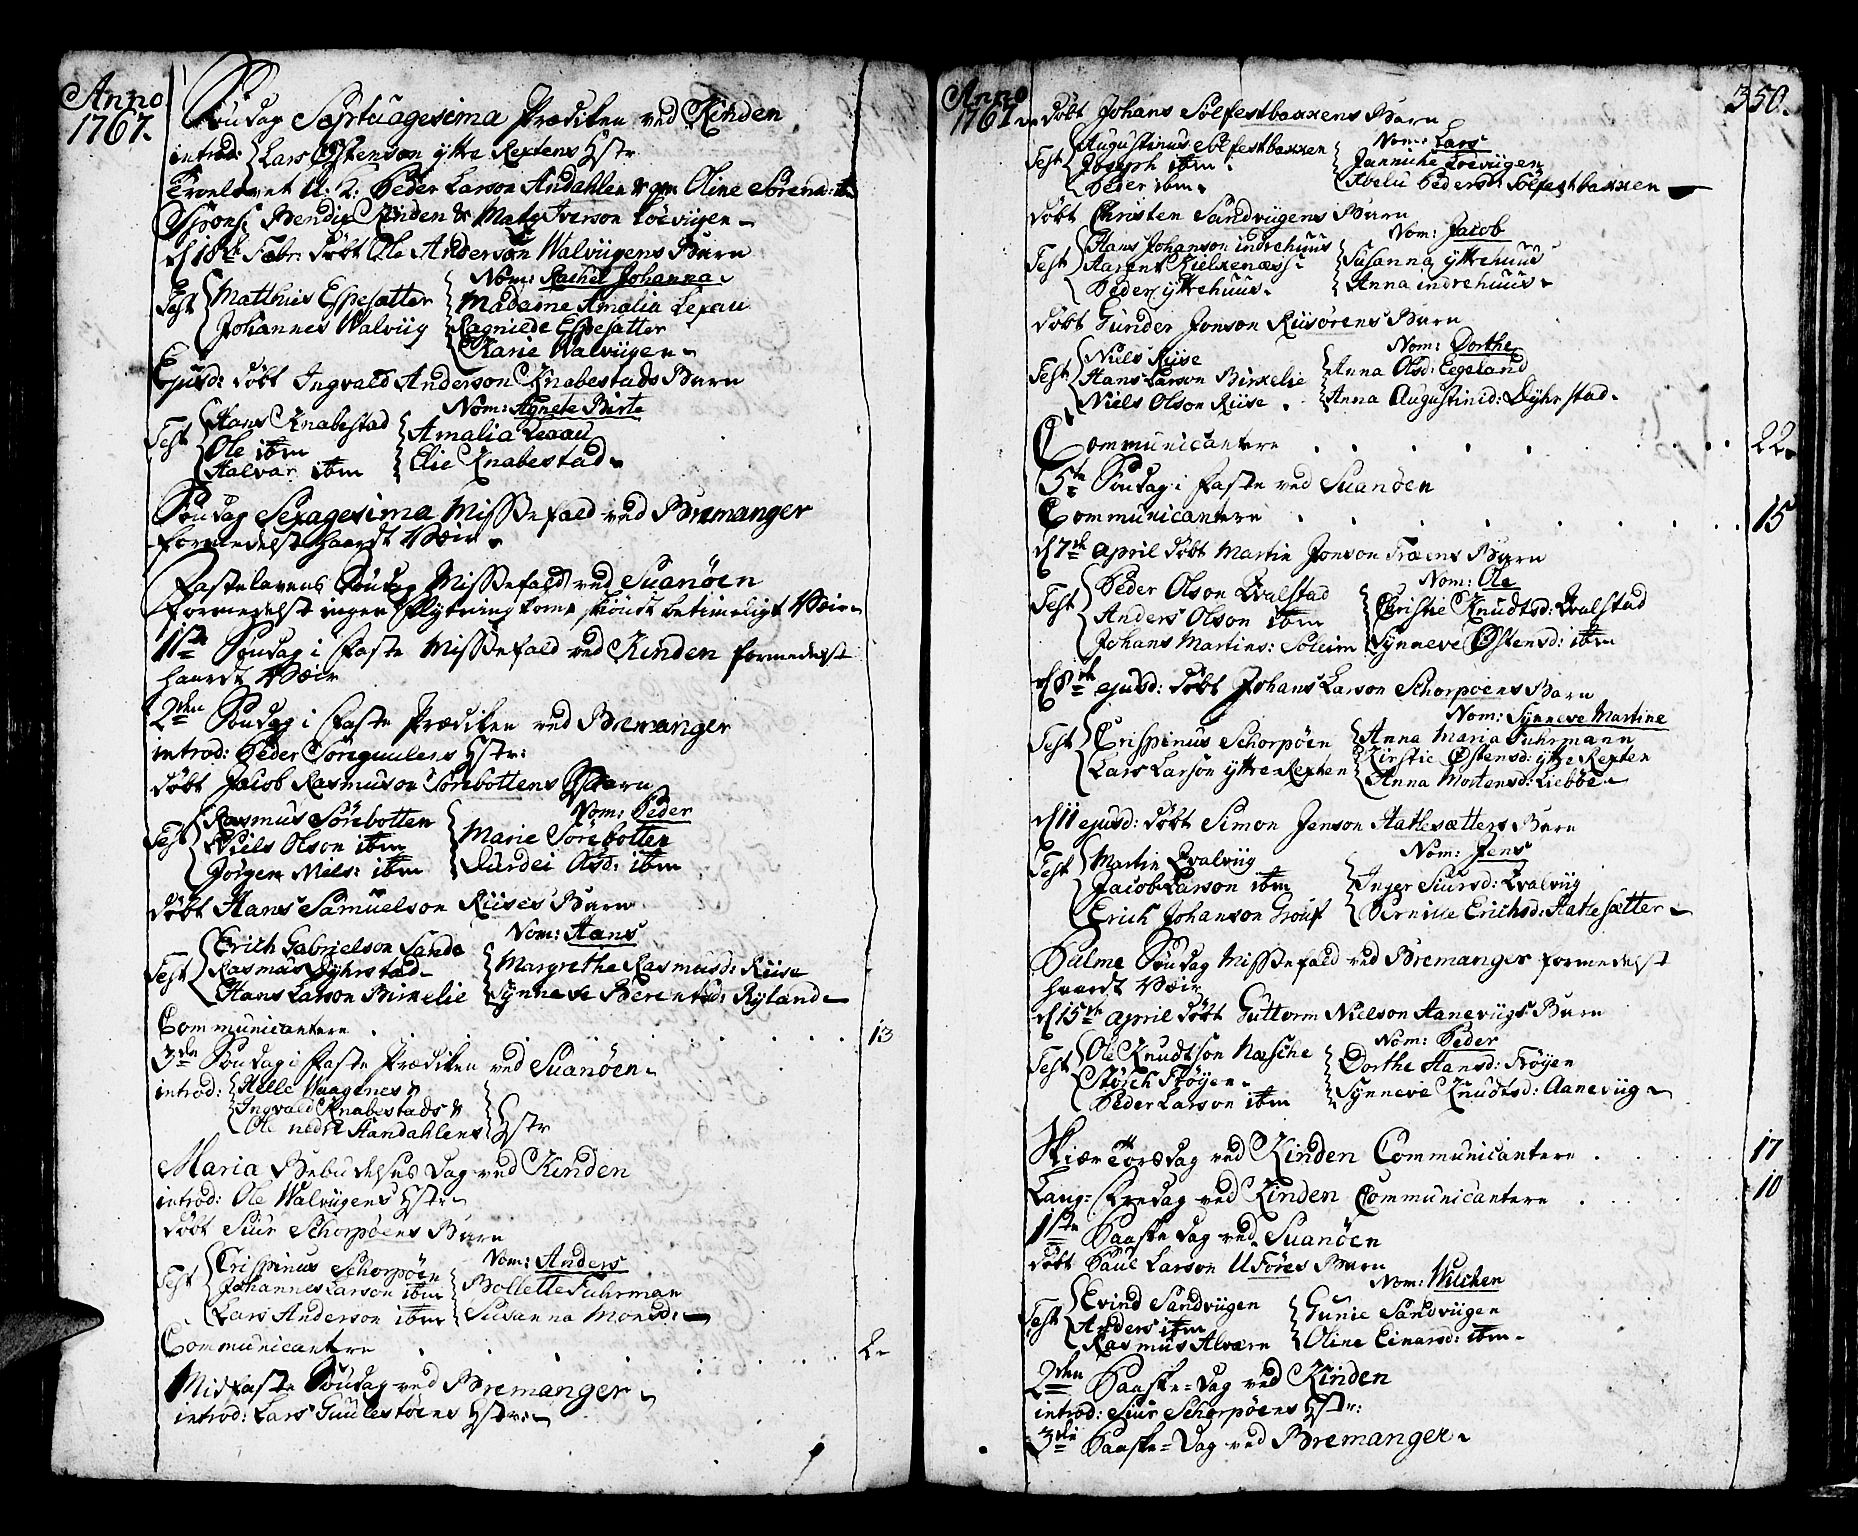 Anno
1767.
Søndag Septuagesima Prædiken ved Kinden
introd: Lars Østenson yttre Rextens Hstr
Troelovet U. 2. Peder Larson Andahlen & qv. Oline Sørensd: ibm
Spons: Bendix Kinden & Mads Iverson Løeviigen
d 18de Febr. døbt Ole Anderson Walviigens Barn
Nom: Rachel Johanna
Test Matthies Espesætter Madame Amalia Lexau
Johannes Walviig Ragniede Espesætter
Karie Walviigen
Ejusd: døbt Ingvald Anderson Knabestads Barn
Nom: Agnete Birte
Test Hans Knabestad Amalia Lexau
Ole ibm Elie Knabestad
Halvar ibm
Søndag Sexagesima Missefald ved Bremanger
formedelst haardt Væir
Fastelavens Søndag Missefald ved Suanöen
formedelst ingen Flytning kom, skiønt betimeligt Væir
1ste Søndag i Faste Missefald ved Kinden formedelst
haardt Væir
2den Søndag i Faste Prædiken ved Bremanger
introd: Peder Söreguulens Hstr:
døbt Jacob Rasmuson Sörebottens Barn
Nom: Peder
Test Rasmus Sörebotten Marie Sörebotten
Niels Olson ibm Giurdei Olsd: ibm
Jörgen Niels: ibm
døbt Hans Samuelson Riises Barn
Nom: Hans
Test Erich Gabrielson Sande
Rasmus Dyhrstad Margrethe Rasmusd: Riise
Hans Larson Birkelie Synneve Berentsd: Ryland
Communicantere 13
3die Søndag i Faste Prædiken ved Suanöen
introd: Helle Waagenes &
Ingvald Knabestads &
Ole nedre Standahlens Hstr
Maria Bebudelses Dag ved Kinden
introd: Ole Walviigens Hstr
døbt Siur Schorpöens Barn
Nom: Anders
Test Crispinus Schorpöen Bollette Fuhrman
Johannes Larson ibm Susanna Monsd:
Lars Anderson ibm
Communicantere 2
Midfaste Søndag ved Bremanger
introd: Lars Guulestöens Hstr:
Anno
1767
350.
døbt Johans Sölfestbaxxens Barn
Nom: Lars
Test Augustinus Sölfestbaxxen Jannicke Løeviigen
Joseph ibm Abelu Pedersd: Sölfestbaxxen
Peder ibm
døbt Christen Sandviigens Barn
Nom: Jacob
Test Hans Johanson indrehuus Susanna yttrehuus
Aarent Kielkenæss Anna indrehuus
Peder yttrehuus
døbt Gunder Jonson Riisörens Barn
Nom: Dorthe
Test Niels Riise Anna Olsd: Eegeland
Hans Larson Birkelie Anna Augustinid: Dyhrstad
Niels Olson Riise
Communicantere 22
5te Søndag i Faste ved Suanöen
Communicantere 15
d 7de April døbt Martin Jonson Træens Barn
Nom: Ole
Test Peder Olson Qvalstad Christie Knudtsd: Qvalstad
Anders Olson ibm Synneve Østensd: ibm
Johans Martins: Soleim
d 8de ejusd: døbt Johans Larson Schorpöens Barn
Nom: Synneve Martine
Test Crispinus Schorpöen Anna Maria Fuhrmann
Lars Larson yttre Rexten Kirstie Østensd: yttre Rexten
Anna Mortensd: Liebbe
d 11 ejusd: døbt Simon Jenson Hatlesætters Barn
Nom: Jens
Test Martin Qvalviig Inger Siursd: Qvalviig
Jacob Larson ibm Pernille Erichsd: Hatlesætter
Erich Johanson Grouf
Palme Søndag Missefald ved Bremanger formedelst
haardt Væir
d 15de April døbt Guttorm Nielson Aaneviigs Barn
Nom: Peder
Test Ole Knudtson Næsche Dorthe Hansd: Fröyen
Störch Fröyen Synneve Knudtsd: Aaneviig
Peder Larson ibm
Skiær Torsdag ved Kinden Communicantere 17
Lang-Fredag ved Kinden Communicantere 10
1ste Paaske Dag ved Suanöen
døbt Paul Larson Uföres Barn
Nom: Wilchen
Test Evind Sandviigen Gunie Sandviigen
Anders ibm Oline Einarsd: ibm
Rasmus Alværn
2den Paaske-Dag ved Kinden
introd: Siur Schorpöens Hstr:
3die Paaske-Dag ved Bremanger